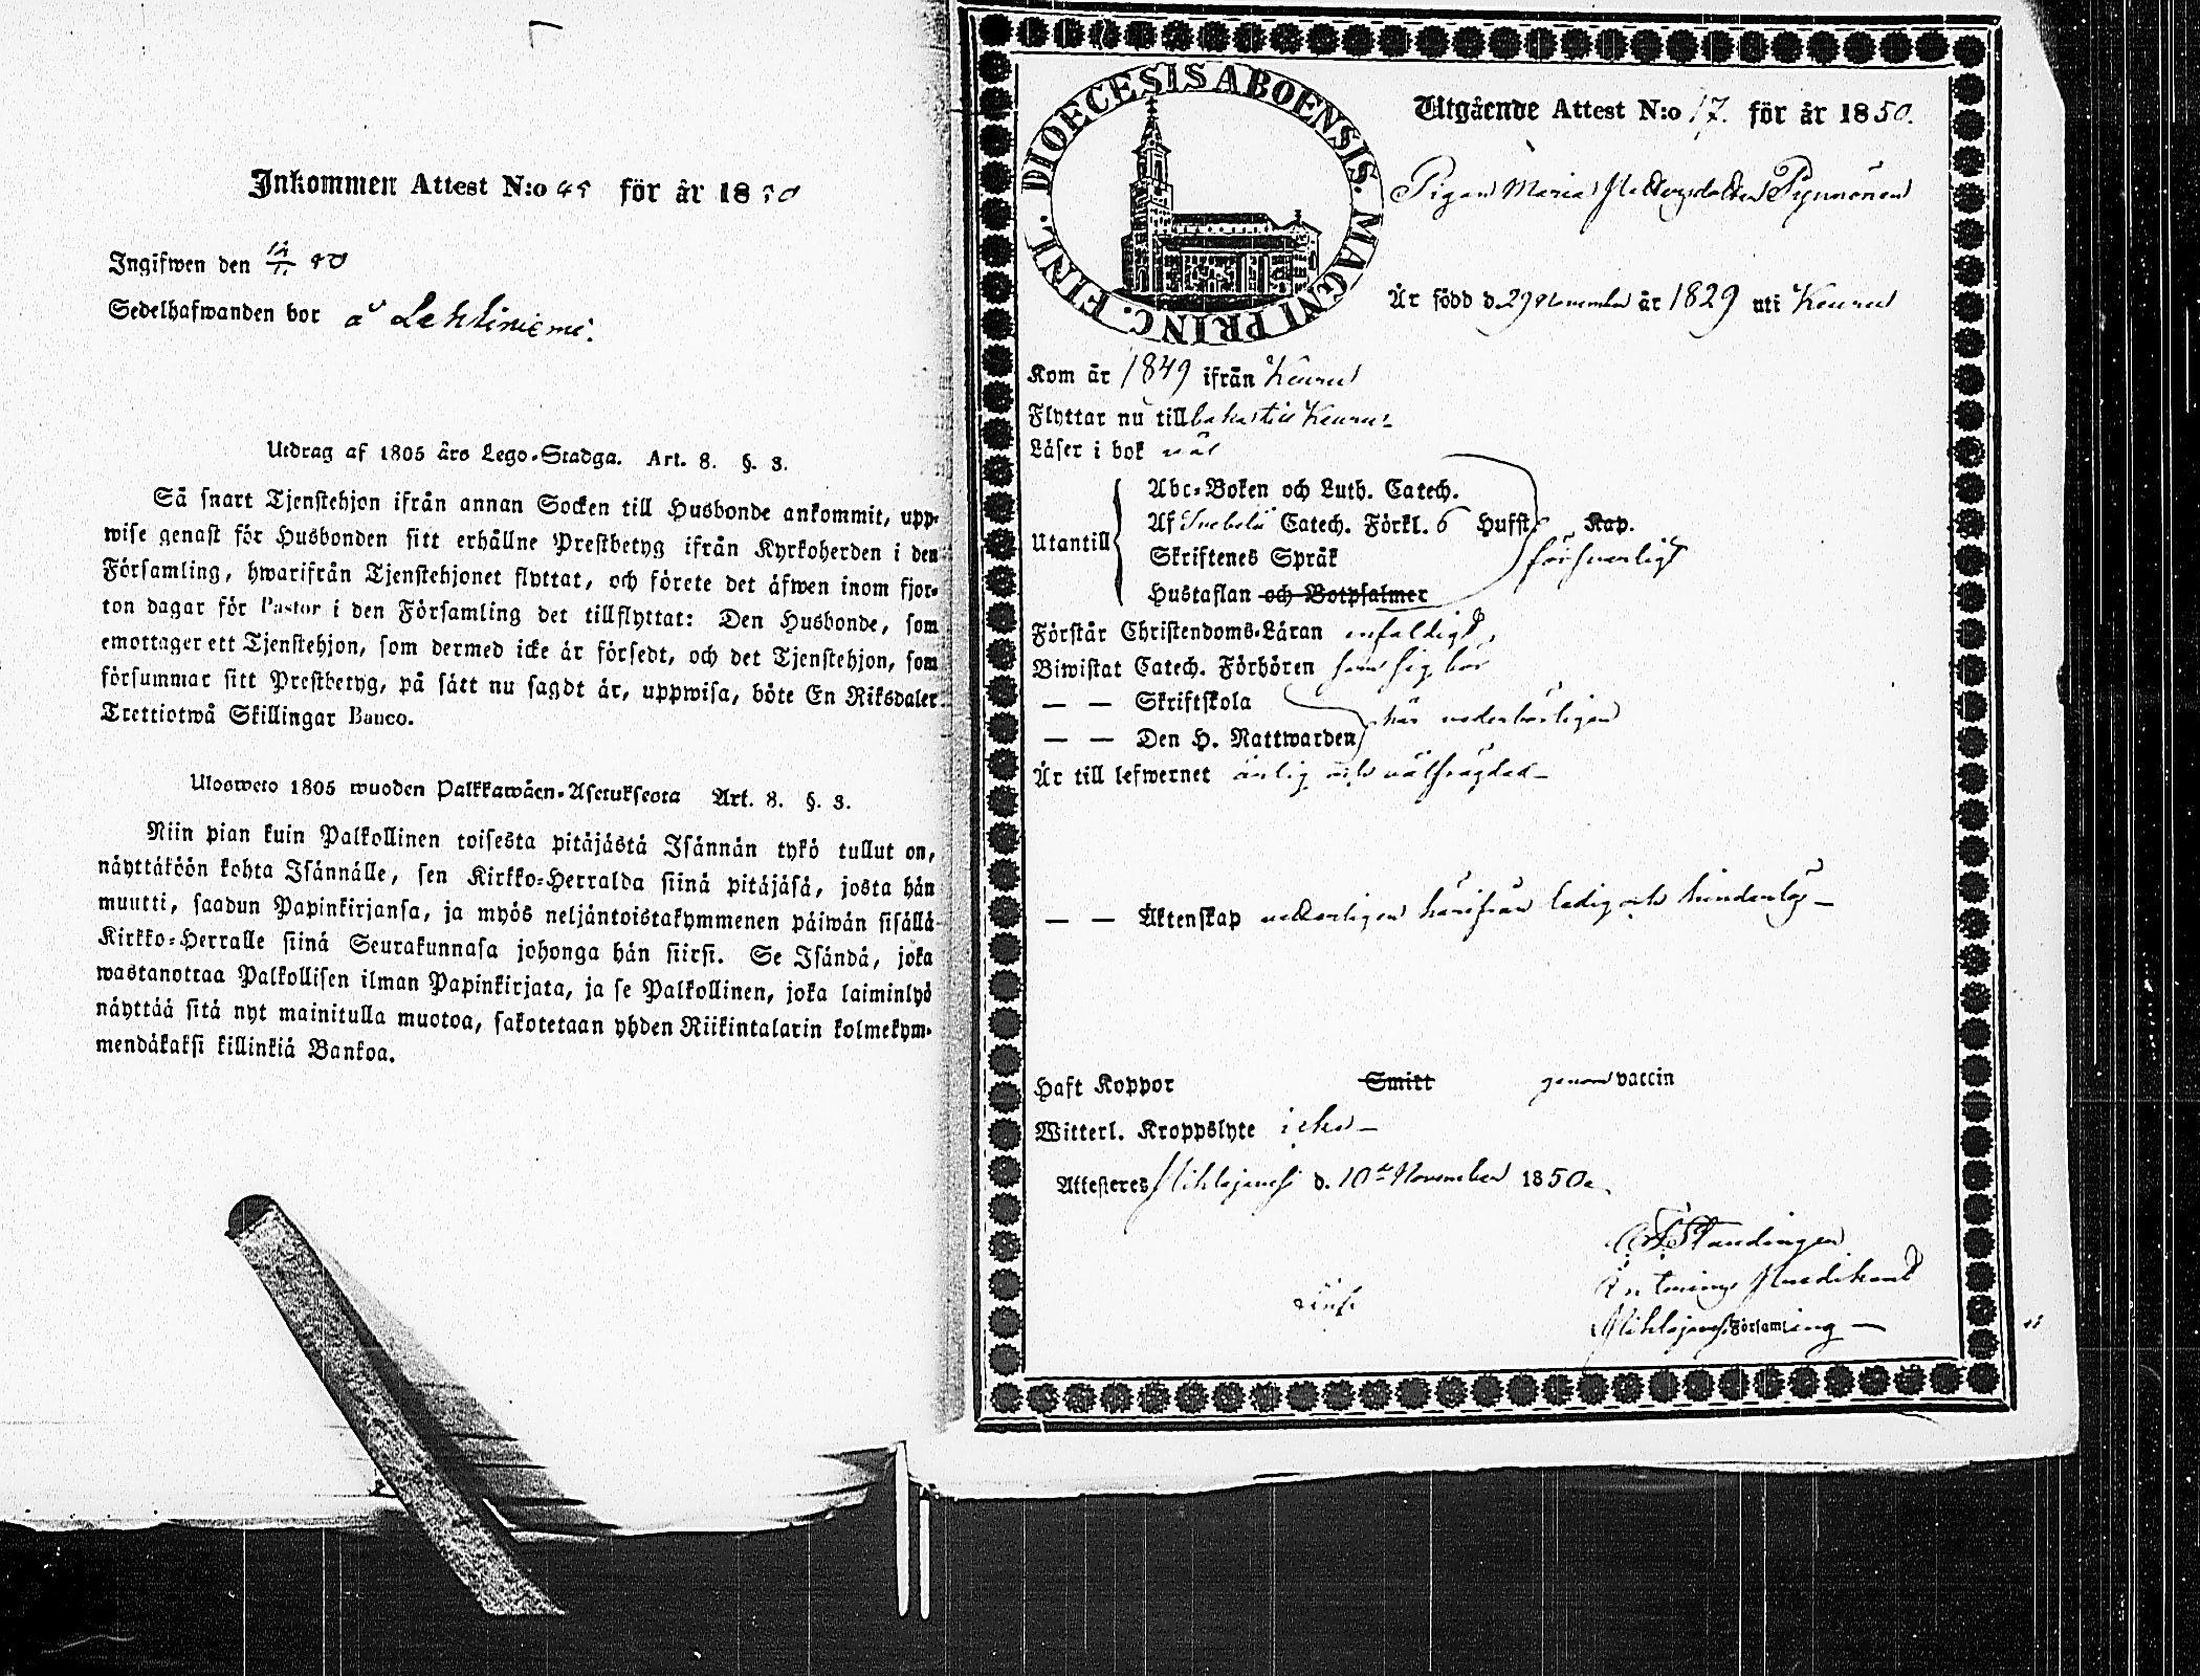 Inkommen Attest N:o 45 för år 1850
Ingifwen den 50
Sedelhafwanden bor å Lehtiniemi.
Utdrag af 1805 års Lego-Stadga. Art. 8. §. 3.
Så snart Tjenstehjon ifrån annan Socken till Husbonde ankommit, upp-
wise genast för Husbonden sitt erhållne Prestbetyg ifrån Kyrkoherden i den
Församling, hwarifrån Tjenstehjonet flyttat, och förete det äfwen inom fjor-
ton dagar för Pastor i den Församling det tillflyttat: Den Husbonde, som
emottager ett Tjenstehjon, som dermed icke är försedt, och det Tjenstehjon, som
försummar sitt Prestbetyg, på sätt nu sagdt är, uppwisa, böte En Riksdaler
Trettiotwå Skillingar Banco.
Ulosweto 1805 wuoden Palkkawäen-Asetuksesta Art. 8. §. 3.
Niin pian kuin Palkollinen toisesta pitäjästä Isännän tykö tullut on,
näyttäköön kohta Isännälle, sen Kirkko-Herralda siinä pitäjäsä, josta hän
muutti, saadun Papinkirjansa, ja myös neljäntoistakymmenen päiwän sisällä
Kirkko-Herralle siinä Seurakunnasa johonga hän siirsi. Se Isändä, joka
wastanottaa Palkollisen ilman Papinkirjata, ja se Palkollinen, joka laiminlyö
näyttää sitä nyt mainitulla muotoa, sakotetaan yhden Riikintalarin kolmekym-
mendäkaksi killinkiä Bankoa.
DIOECESIS ABOENSIS. MAGNI PRINC. FINL.
Utgående Attest N:o 17. för år 1850.
Pigan Maria
Är född d. 29 November år 1829 uti Keuru
Kom år 1849 ifrån Keuru
Flyttar nu tillbaka till Keuru
Läser i bok väl
Utantill
Abc-Boken och Luth. Catech.
Af Svebelii Catech. Förkl. 6 Hufst. Kap.
Skriftenes Språk
försvarligt
Hustaflan och Botpsalmer
Förstår Christendoms-Läran enfaldigt,
Biwistat Catech. Förhören som sig bör
— — Skriftskola
här vederbörligen
— — Den H. Nattwarden
Är till lefwernet ärlig och välfrägdad —
— — Äktenskap härifrån ledig och hinderlös —
Haft Koppor Smitt genom vaccin
Witterl. Kroppslyte icke —
Attesteres d. 10de November 1850.
Församling —